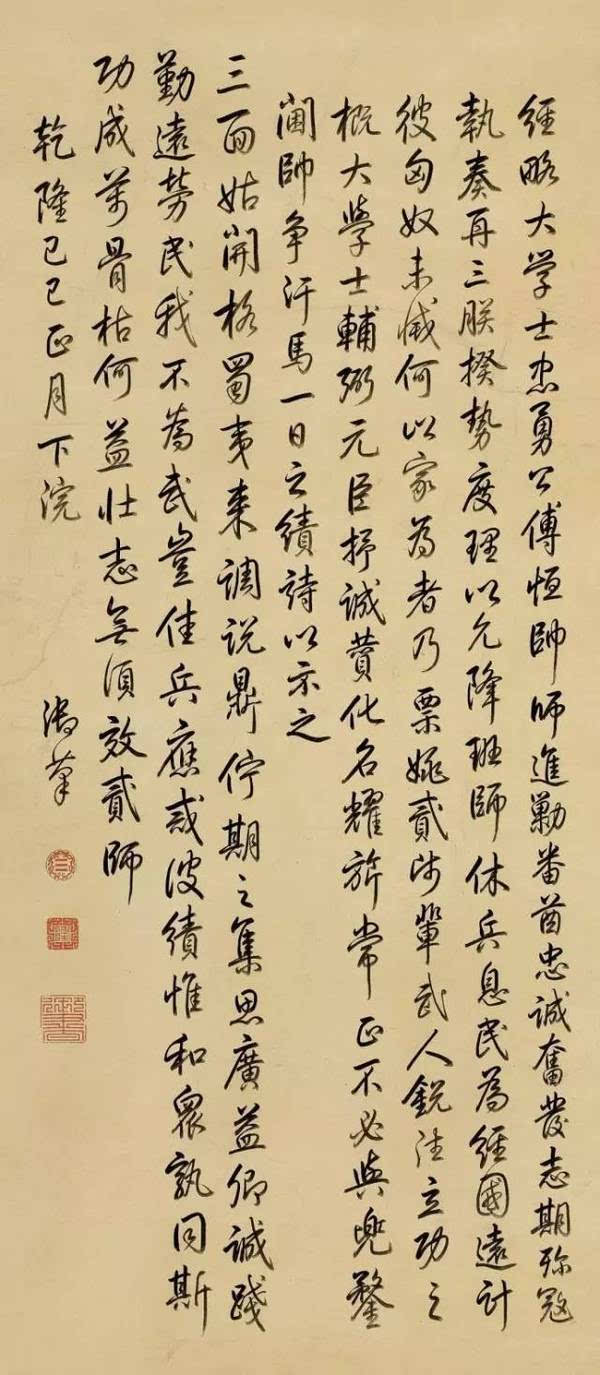 經略大学士忠勇公傅恒帥師進勦番酋忠誠奮發志期殄寇
執奏再三朕揆勢度理以允降班師休兵息民為經國遠計
彼匈奴未滅何以家為者乃票姚貳師輩武人銳注立功之
概大學士輔弼元臣抒誠贊化名耀旂常正不必與兜鍪
閫帥争汗馬一日之績詩以示之
三面姑開格蜀夷来調説鼎佇期之集思廣益卿誠踐
勤遠勞民我不為武豈佳兵應戒彼績惟和衆孰同斯
功成萬骨枯何益壮志無須效貳師
乾隆己巳正月下浣
御筆